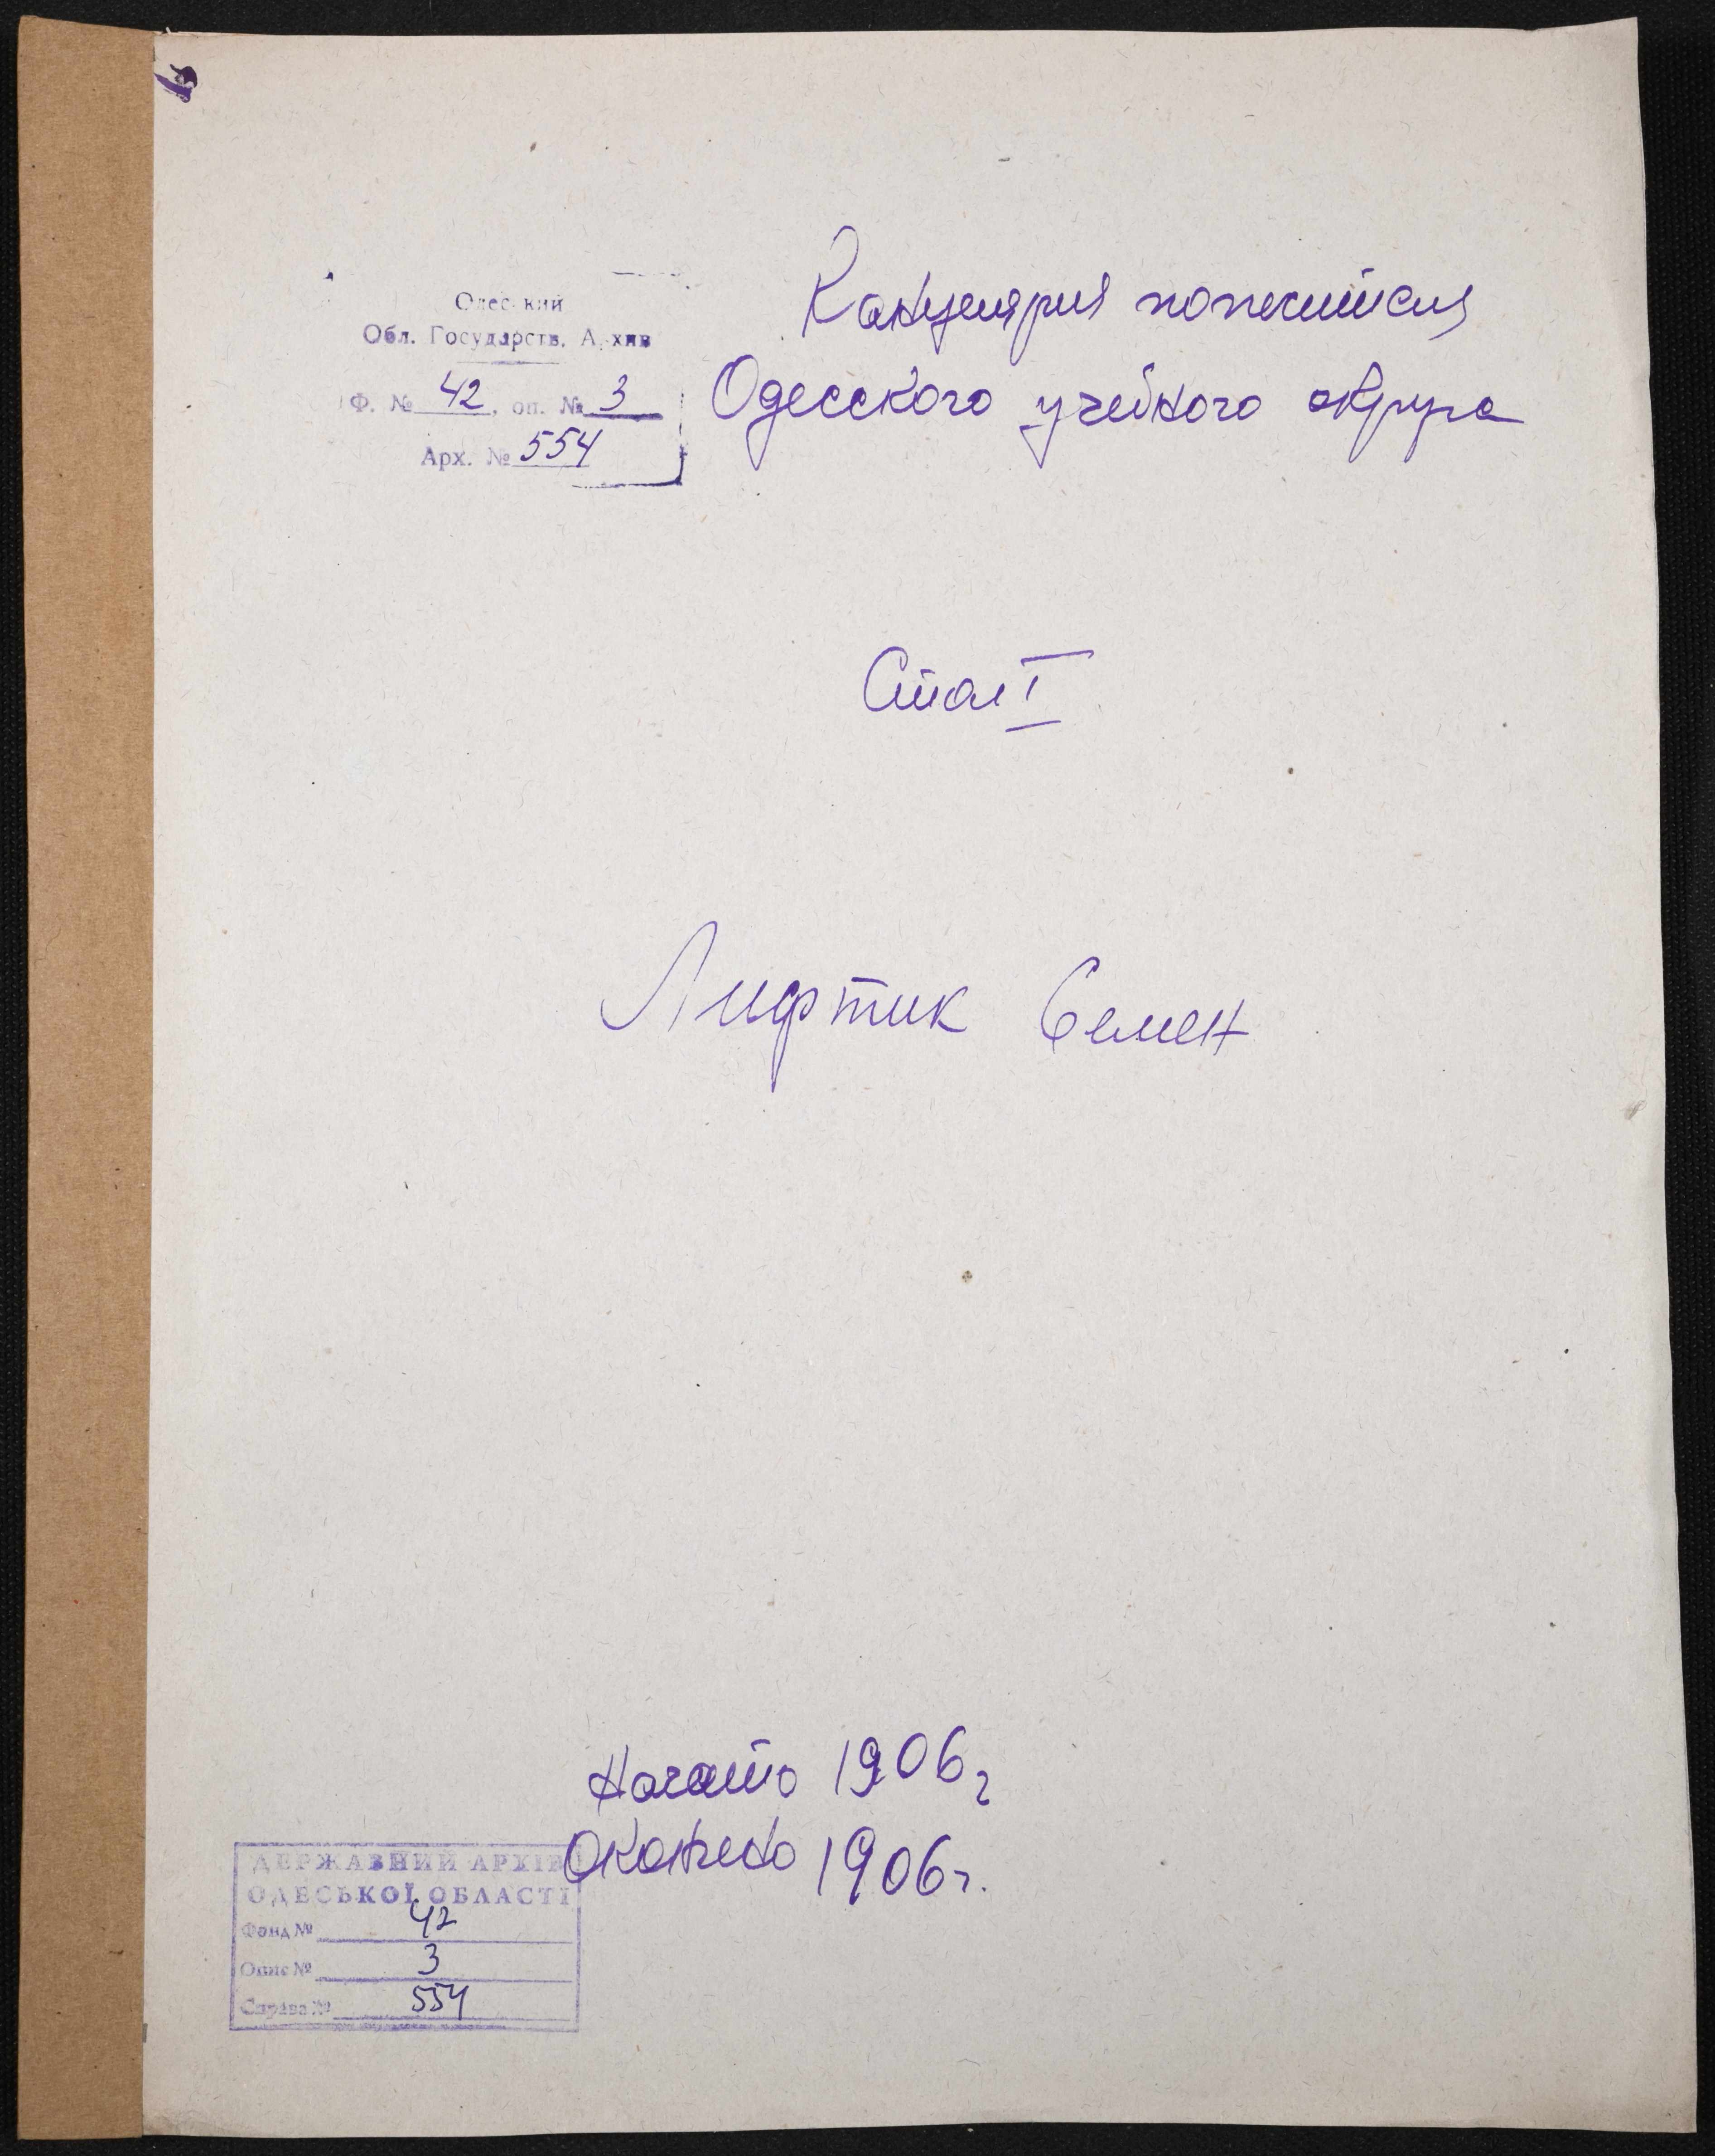 Одесский
Обл. Государств. Архив
Ф. № 42, оп. № 3
Арх. № 554
Канцелярия попечителя
Одесского учебного округа
Стол I
Лифтик Семен
Начато 1906 г
Окончено 1906 г.
ДЕРЖАВНИЙ АРХІВ
ОДЕСЬКОЇ ОБЛАСТІ
Фонд № 42
Опис № 3
Справа № 554